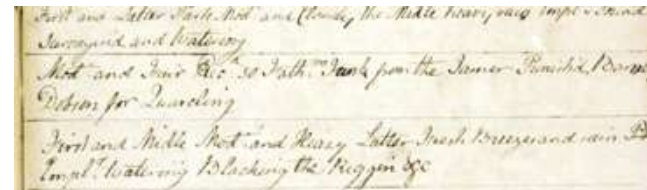 First and Latter Parts Mod.t and Cloudy the Midle heavy rain Empl.d
Surveying and Watering
Mod.t and Fair Rec.d 30 Fath.ms Junk from the Punished
Dobson for Quareling
First and Midle Mod.t and Heazy Latter Fresh Breezes and rain
Empl.d Watering Blacking the Riggen &c